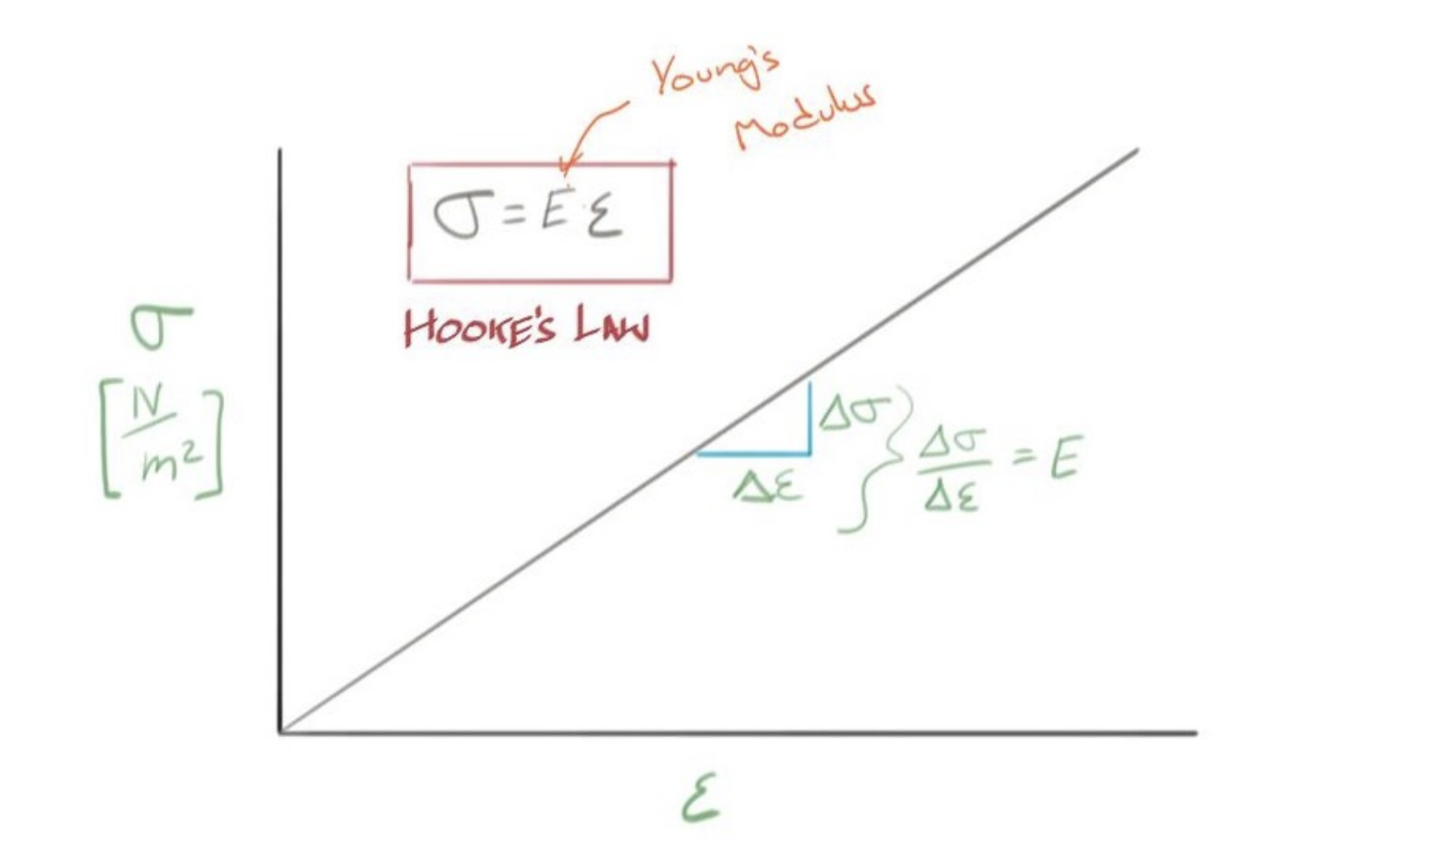 Young's
Modulus
σ = E · ε
HOOKE'S LAW
σ
[N/m²]
Δσ
Δε
Δσ/Δε = E
ε